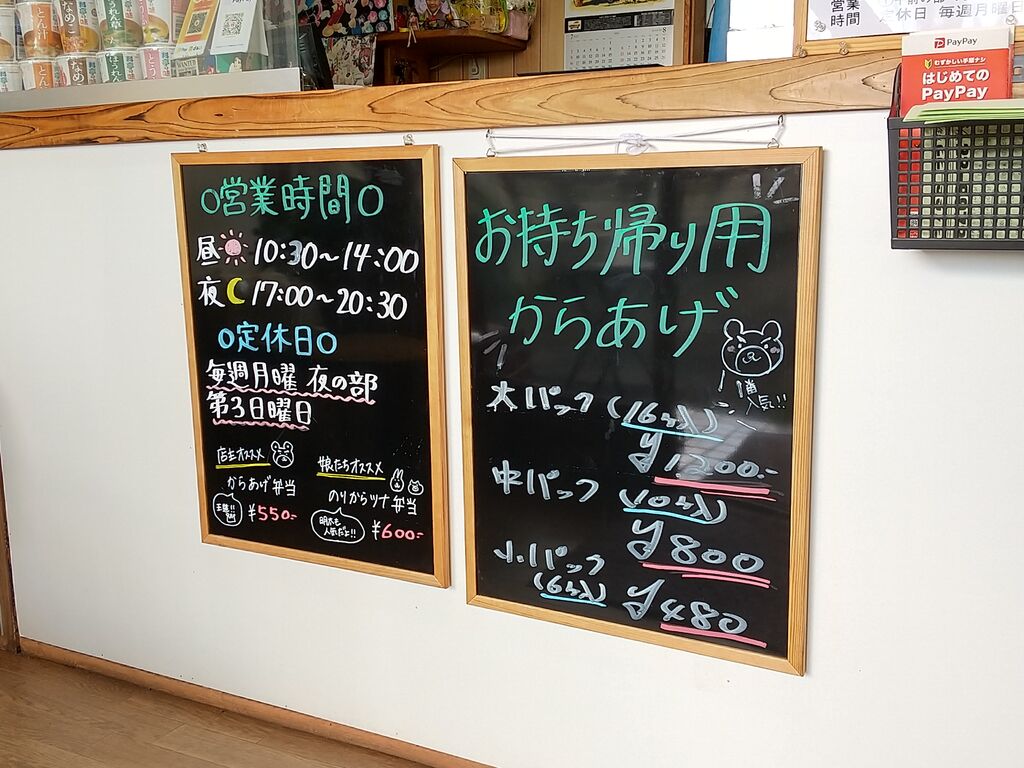 ○営業時間○
昼 10:30~14:00
夜 17:00~20:30
○定休日○
毎週月曜 夜の部
第3日曜日
店主オススメ
からあげ弁当
王道!!
¥550-
娘たちオススメ
のりからツナ弁当
人気だよ!!
¥600-
お持ち帰り用
からあげ
1番
人気!!
大パック (16ヶ入)
¥1200-
中パック (10ヶ入)
¥800
小パック
(6ヶ入) ¥480
営業
時間
定休日 毎週月曜日
PayPay
むずかしい手順ナシ
はじめての
PayPay
とん汁
なめこ
ほうれん草
とん
なめこ
8